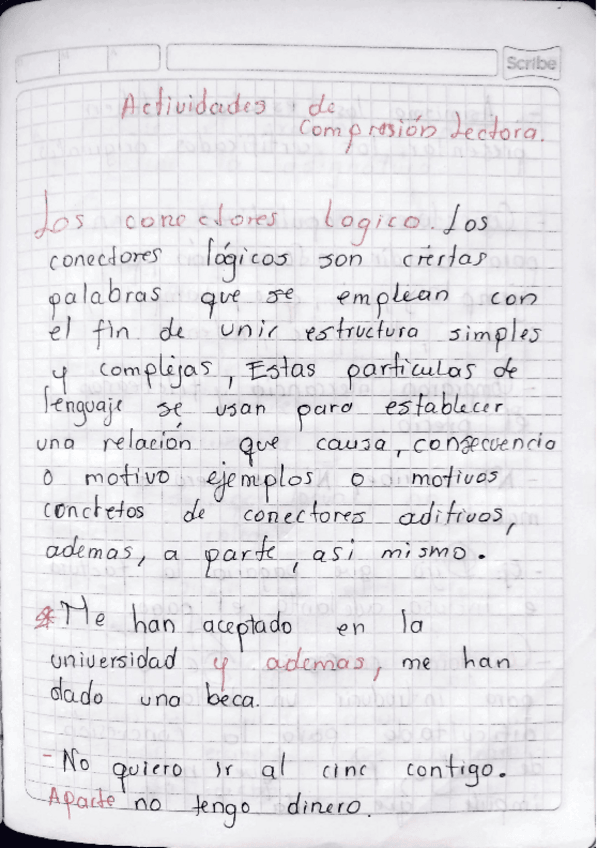 Scribe
Actividades de
Compresión Lectora.
Los conectores Logico. Los
conectores lógicos son ciertas
palabras que se emplean con
el fin de unir estructura simples
y complejas, Estas particulas de
lenguaje se usan para establecer
una relación que causa, consecuencia
o motivo ejemplos o motivos
concretos de conectores aditivos,
ademas, a parte, asi mismo.
* Me han aceptado en la
universidad y ademas, me han
dado una beca.
- No quiero ir al cine contigo.
Aparte no tengo dinero.